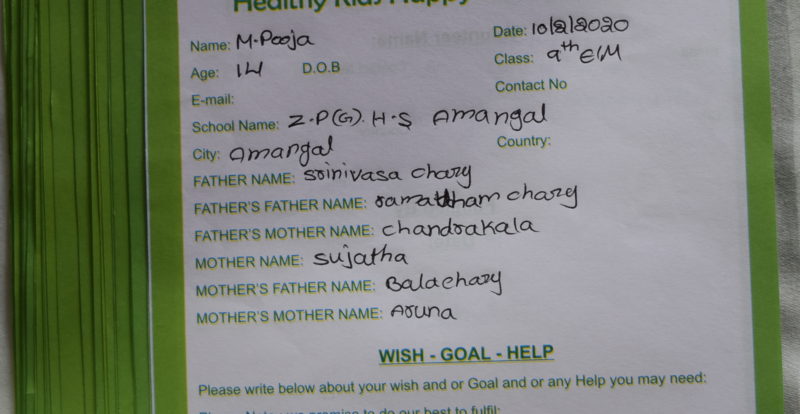 Healthy Kids Happy
Name: M.Pooja Date: 10/2/2020
Age: 14 D.O.B Class: 9th E/M
E-mail: Contact No
School Name: Z.P(G).H.S Amangal
City: Amangal Country:
FATHER NAME: Srinivasa chary
FATHER'S FATHER NAME: chary
FATHER'S MOTHER NAME: chandrakala
MOTHER NAME: Sujatha
MOTHER'S FATHER NAME: Balachary
MOTHER'S MOTHER NAME: Aruna
WISH - GOAL - HELP
Please write below about your wish and or Goal and or any Help you may need:
Please Note: we promise to do our best to fulfil: